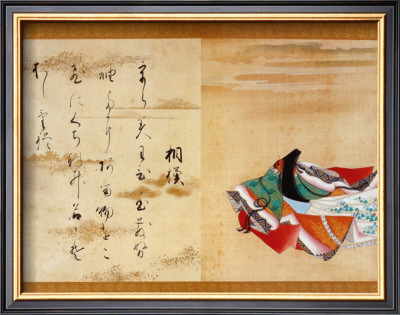 相模
うら美わひほさぬ
袖たにある物をこ
ひにくちなむ名こそ
をし希れ